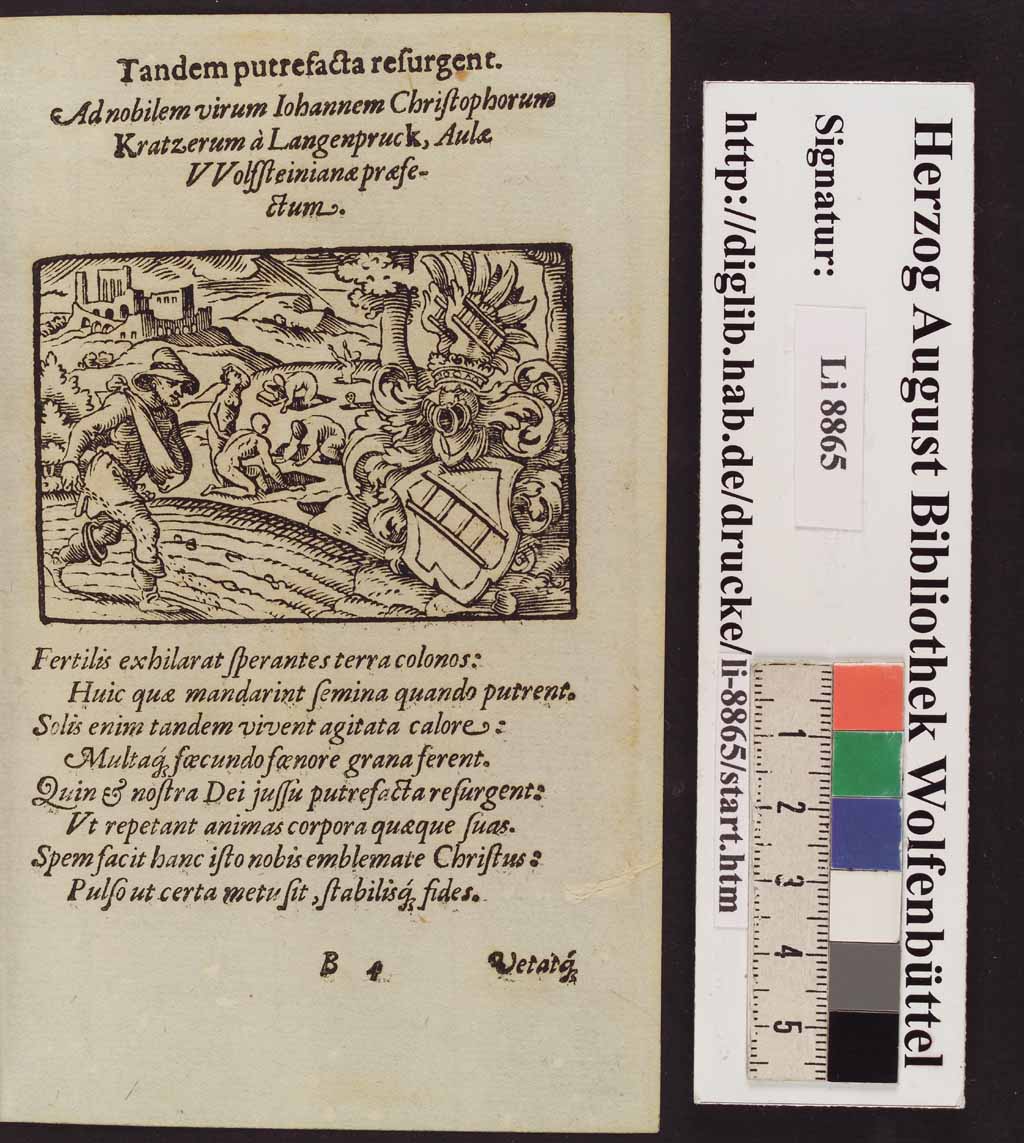 Tandem putrefacta reſurgent.
Ad nobilem virum Iohannem Chriſtophorum
Kratzerum à Langenpruck, Aulæ
VVolffſteinianæ præfe-
ctum.
Fertilis exhilarat ſperantes terra colonos:
Huic quæ mandarint ſemina quando putrent.
Solis enim tandem vivent agitata calore:
Multaq́; fœcundo fœnore grana ferent.
Quin & noſtra Dei juſſu putrefacta reſurgent:
Vt repetant animas corpora quæque ſuas.
Spem facit hanc iſto nobis emblemate Chriſtus:
Pulſo ut certa metu ſit, ſtabilisq́; fides.
B 4 Vetatq́;
Herzog August Bibliothek Wolfenbüttel
Signatur: Li 8865
http://diglib.hab.de/drucke/li-8865/start.htm
1
2
3
4
5